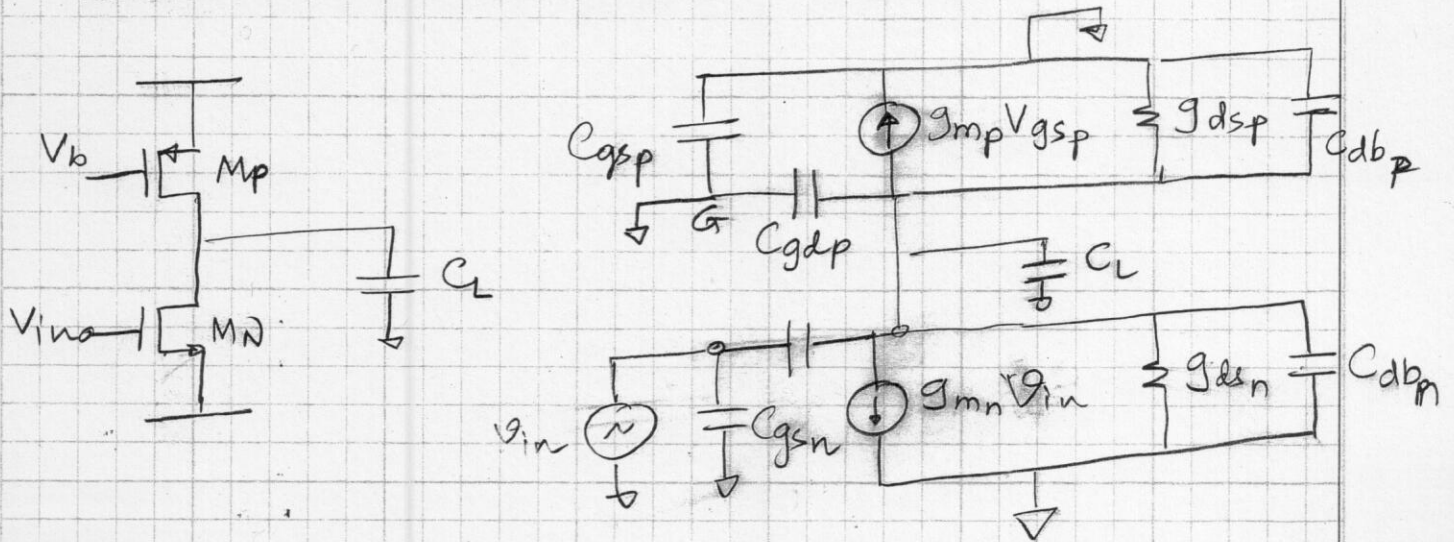 Vb
Mp
CL
Vin
MN
Cgsp
gmpVgsp
gdsp
Cdbp
G
Cgdp
CL
vin
Cgsn
gmnvin
gdsn
Cdbn